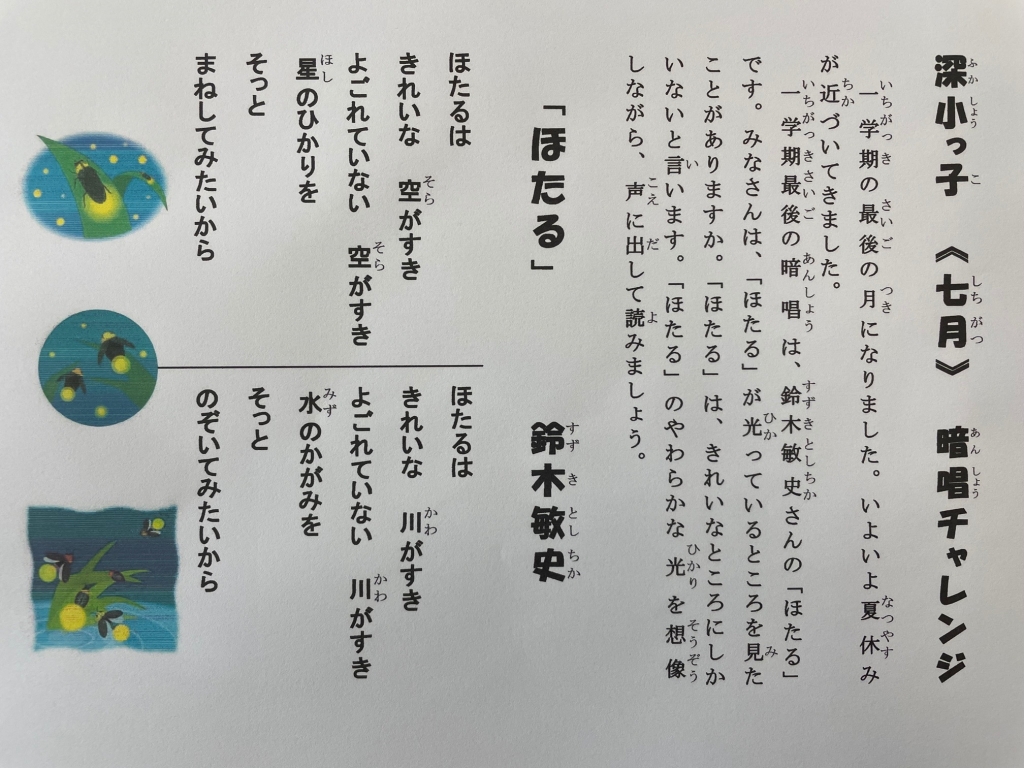 深小っ子　《七月》　暗唱チャレンジ
一学期の最後の月になりました。いよいよ夏休み
が近づいてきました。
一学期最後の暗唱は、鈴木敏史さんの「ほたる」
です。みなさんは、「ほたる」が光っているところを見た
ことがありますか。「ほたる」は、きれいなところにしか
いないと言います。「ほたる」のやわらかな光を想像
しながら、声に出して読みましょう。
「ほたる」　鈴木敏史
ほたるは
きれいな　空がすき
よごれていない　空がすき
星のひかりを
そっと
まねしてみたいから
ほたるは
きれいな　川がすき
よごれていない　川がすき
水のかがみを
そっと
のぞいてみたいから